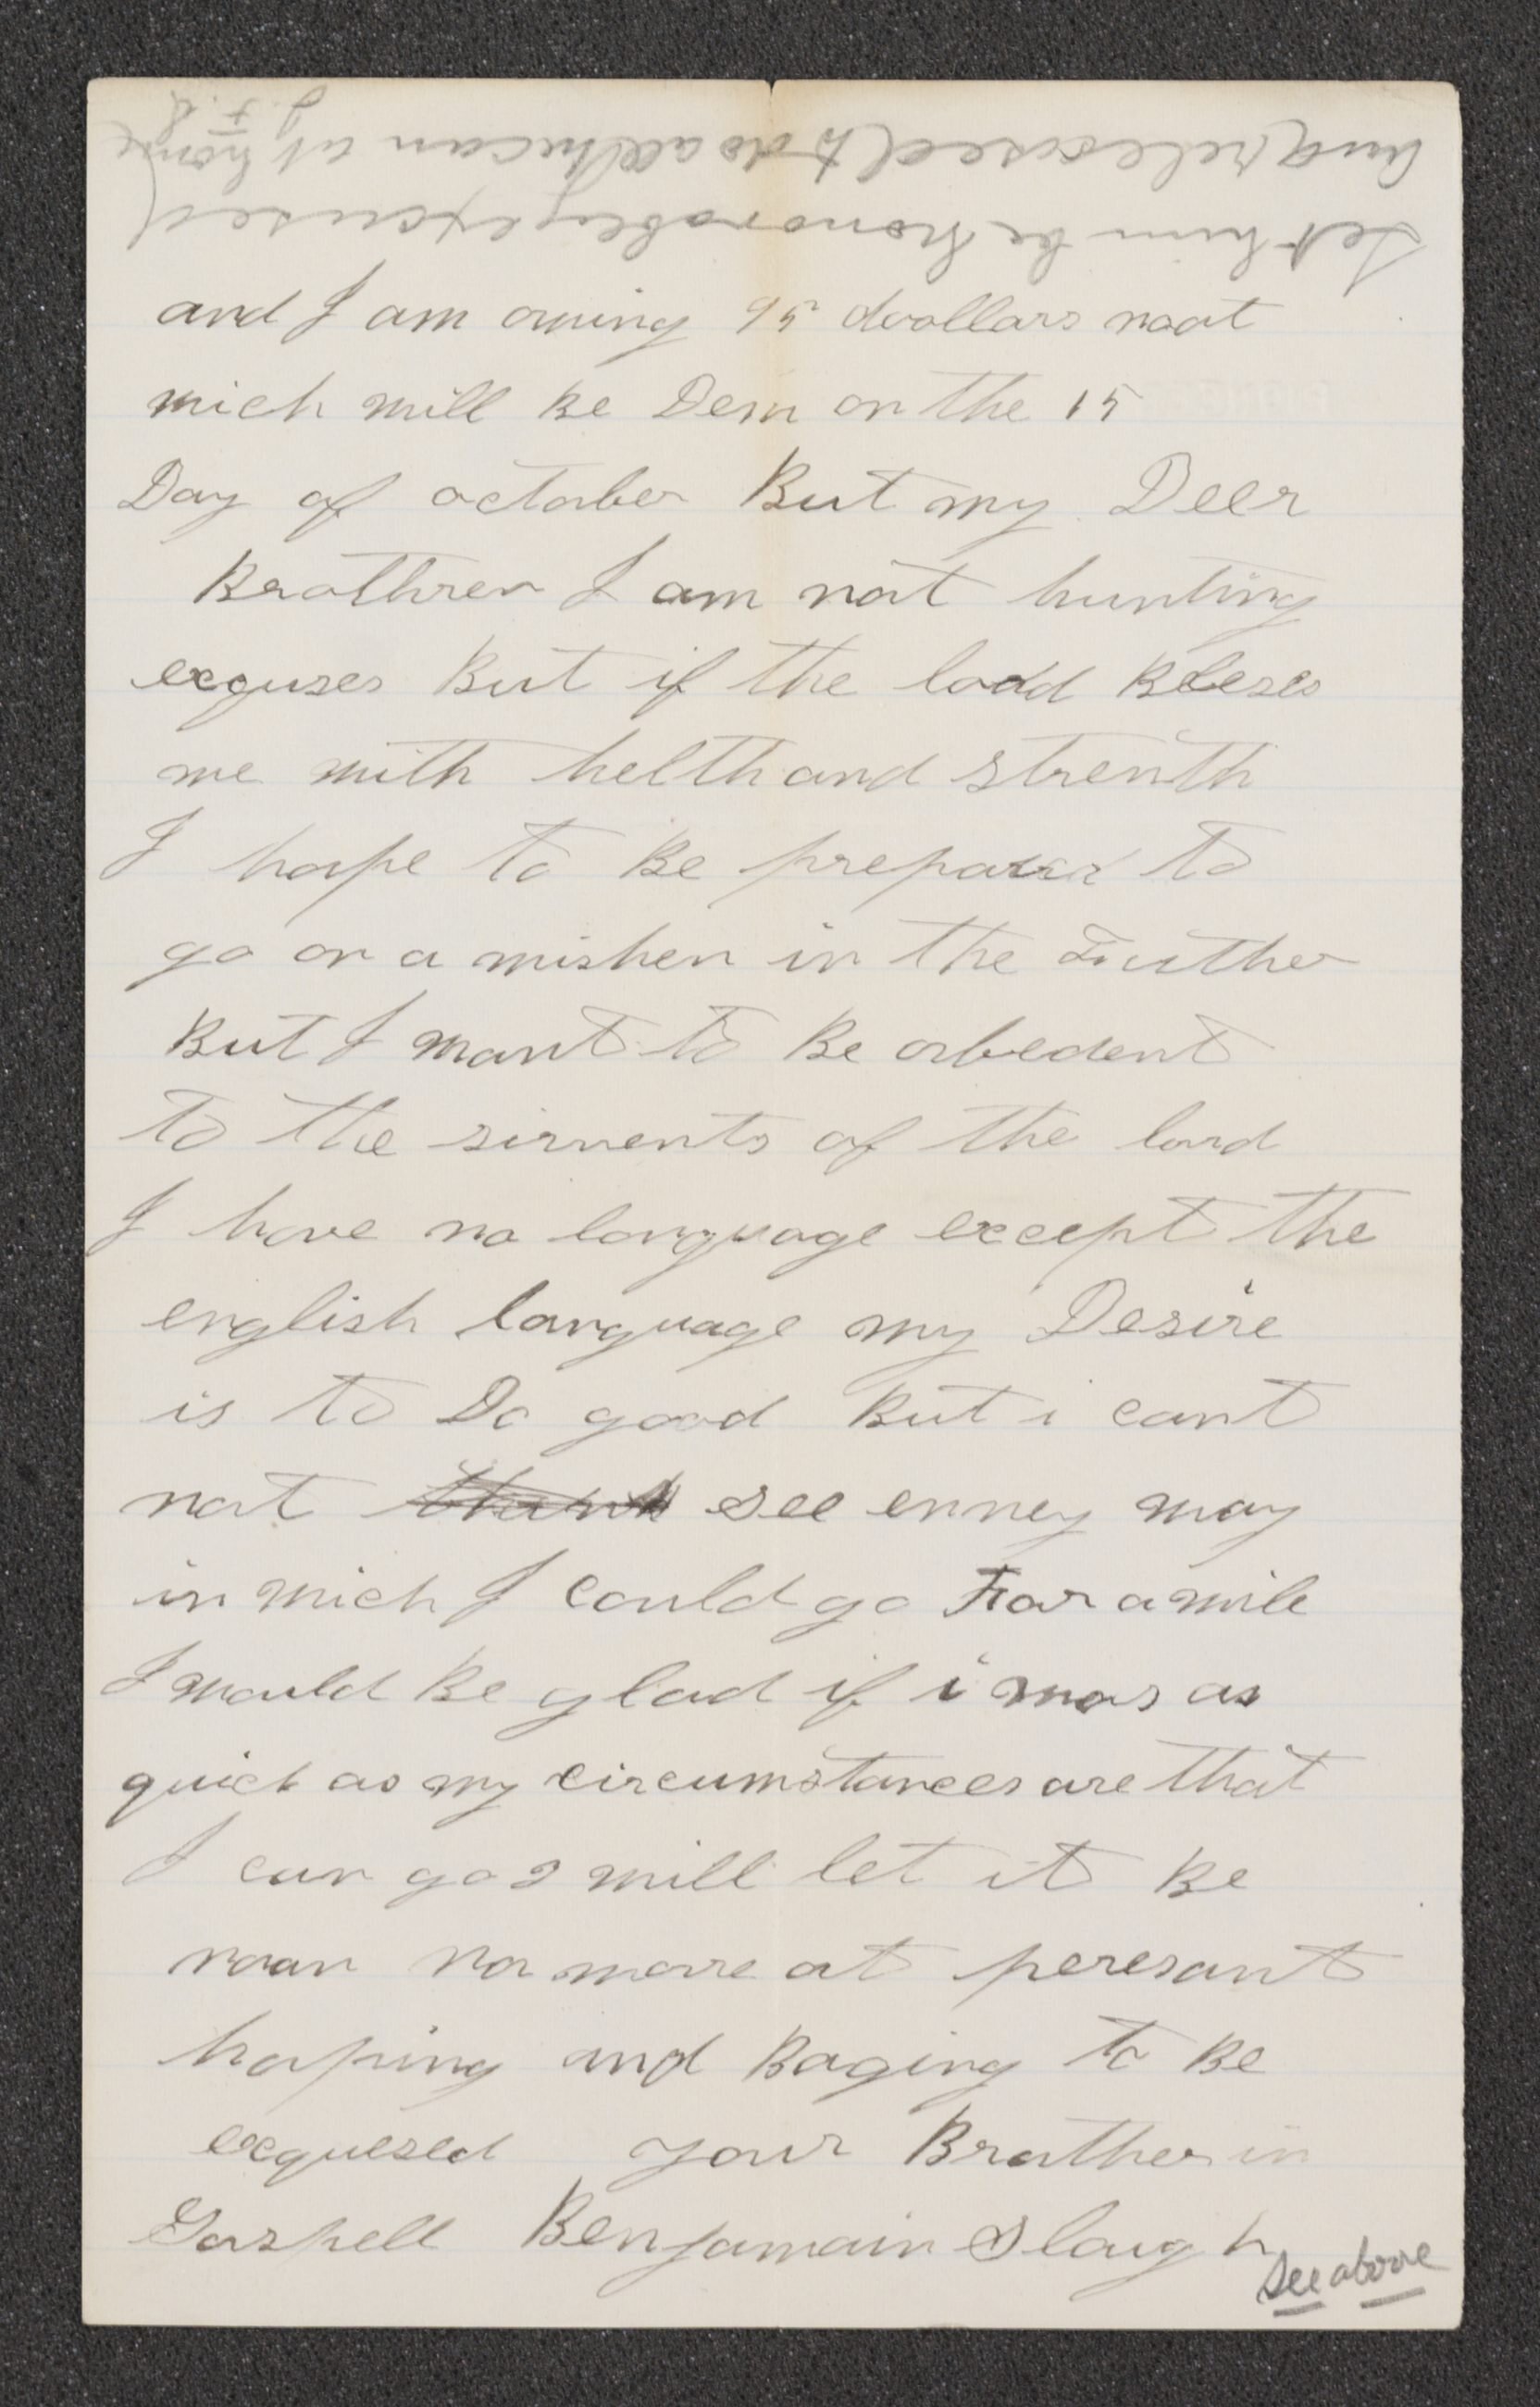 Let him be honorabley excused
and released to do all he can at home
J. F. S.
and I am owing 95 doollars noat
wich will be Dew on the 15
Day of october But my Deer
Brothren I am not hunting
exquses But if the lord Bleses
me with helth and strenth
I hope to Be prepared to
go on a mishen in the Futher
But I want to Be obedent
to the sirvents of the lord
I have no language except the
english language my Desire
is to Do good But i cant
not see enney way
in wich I could go For a wile
I would Be glad if i was as
quick as my circumstances are that
I can go I will let it Be
noan no more at peresant
hoping and Baging to Be
exquesed your Brother in
Gospell Benjamain Slaugh
See above